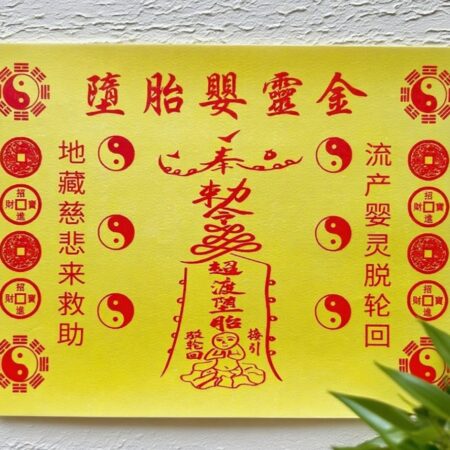 墮胎嬰靈金
地藏慈悲来救助
奉
勅令
超渡墮胎
接引
流产婴灵脱轮回
招財進寶
招財進寶
招財進寶
招財進寶